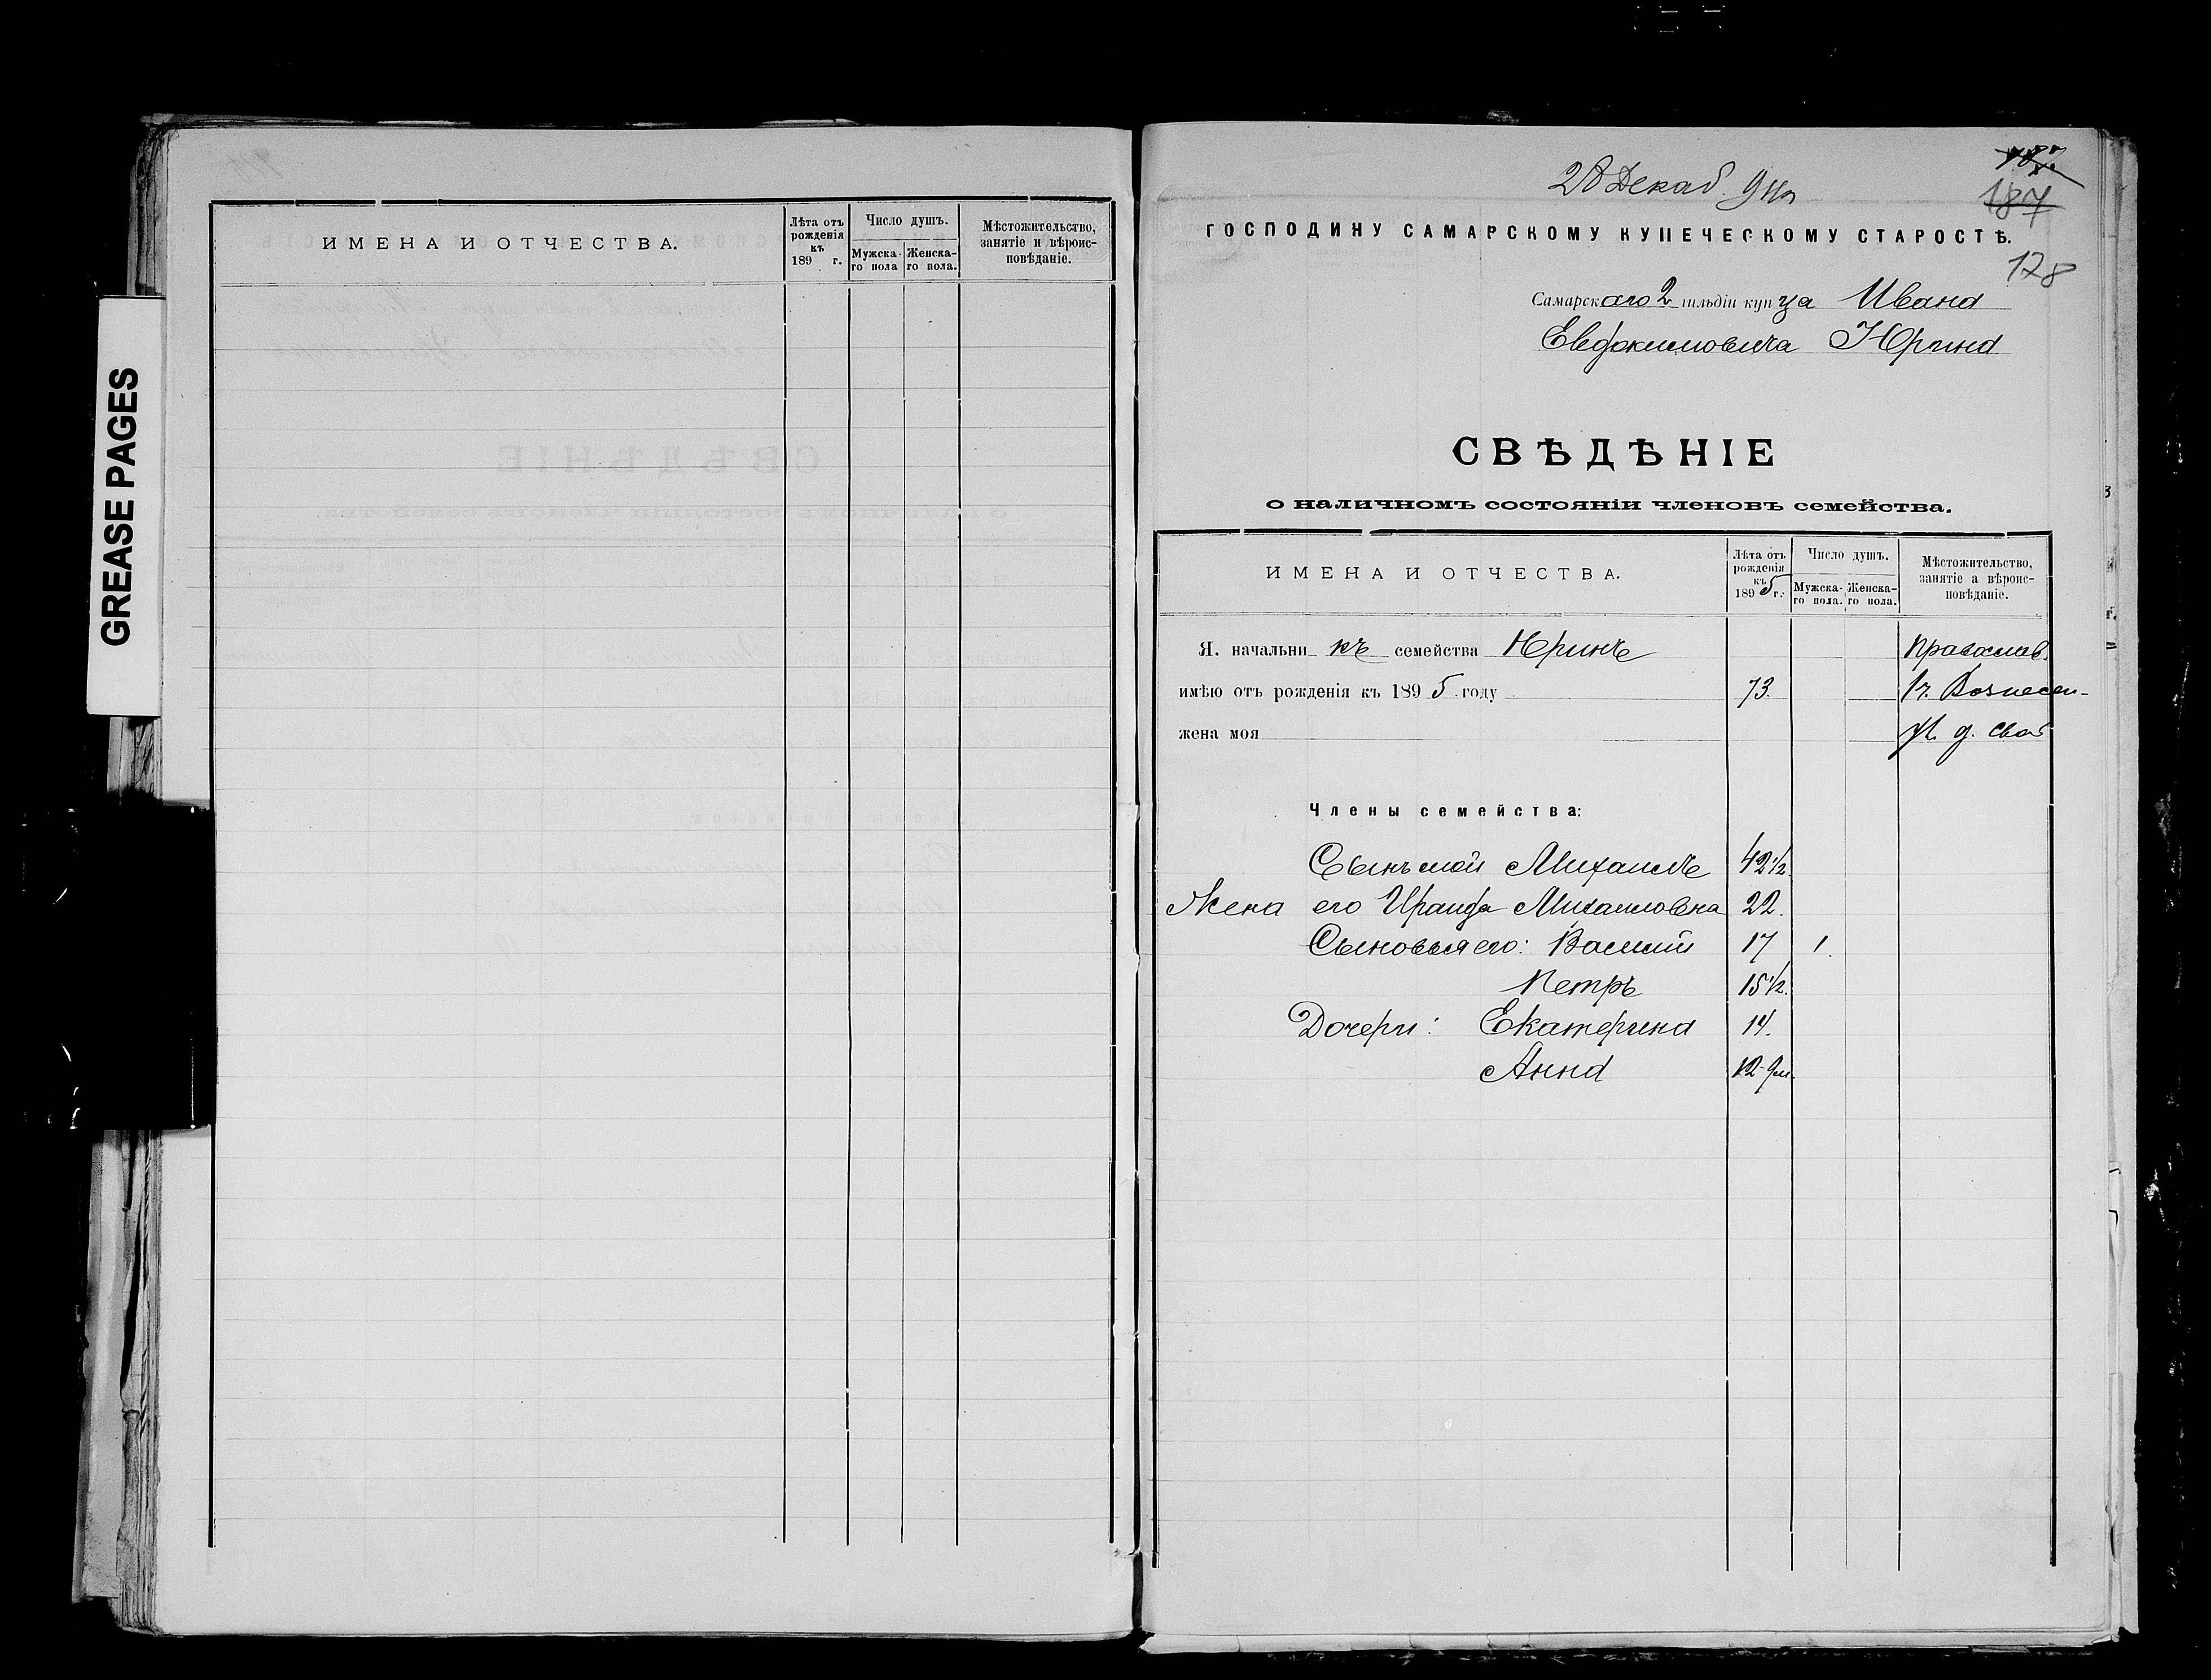 GREASE PAGES
ИМЕНА И ОТЧЕСТВА.
Лѣта отъ рожденія къ 189 г.
Число душъ.
Мужска-го пола
Женска-го пола.
Мѣстожительство, занятіе и вѣроис-повѣданіе.
28 Декаб. 94
187
187
ГОСПОДИНУ САМАРСКОМУ КУПЕЧЕСКОМУ СТАРОСТѢ.
128
Самарскаго 2 гильдіи купца Ивана
Евдокимовича Юрина
СВѢДѢНІЕ
о наличномъ состояніи членовъ семейства.
ИМЕНА И ОТЧЕСТВА.
Лѣта отъ рожденія къ 1895 г.
Число душъ.
Мужска-го пола.
Женска-го пола.
Мѣстожительство, занятіе а вѣроис-повѣданіе.
Я. начальникъ семейства Юринъ Православ.
имѣю отъ рожденія къ 1895 году 73. 1ч. Вознесен-
жена моя ул. д. свой
Члены семейства:
Сынъ мой Михаилъ 42 1/2.
Жена его Ираида Михаиловна 22.
Сыновья его: Василій 17 1.
Петръ 15 1/2.
Дочери: Екатерина 14.
Анна 12-9м.